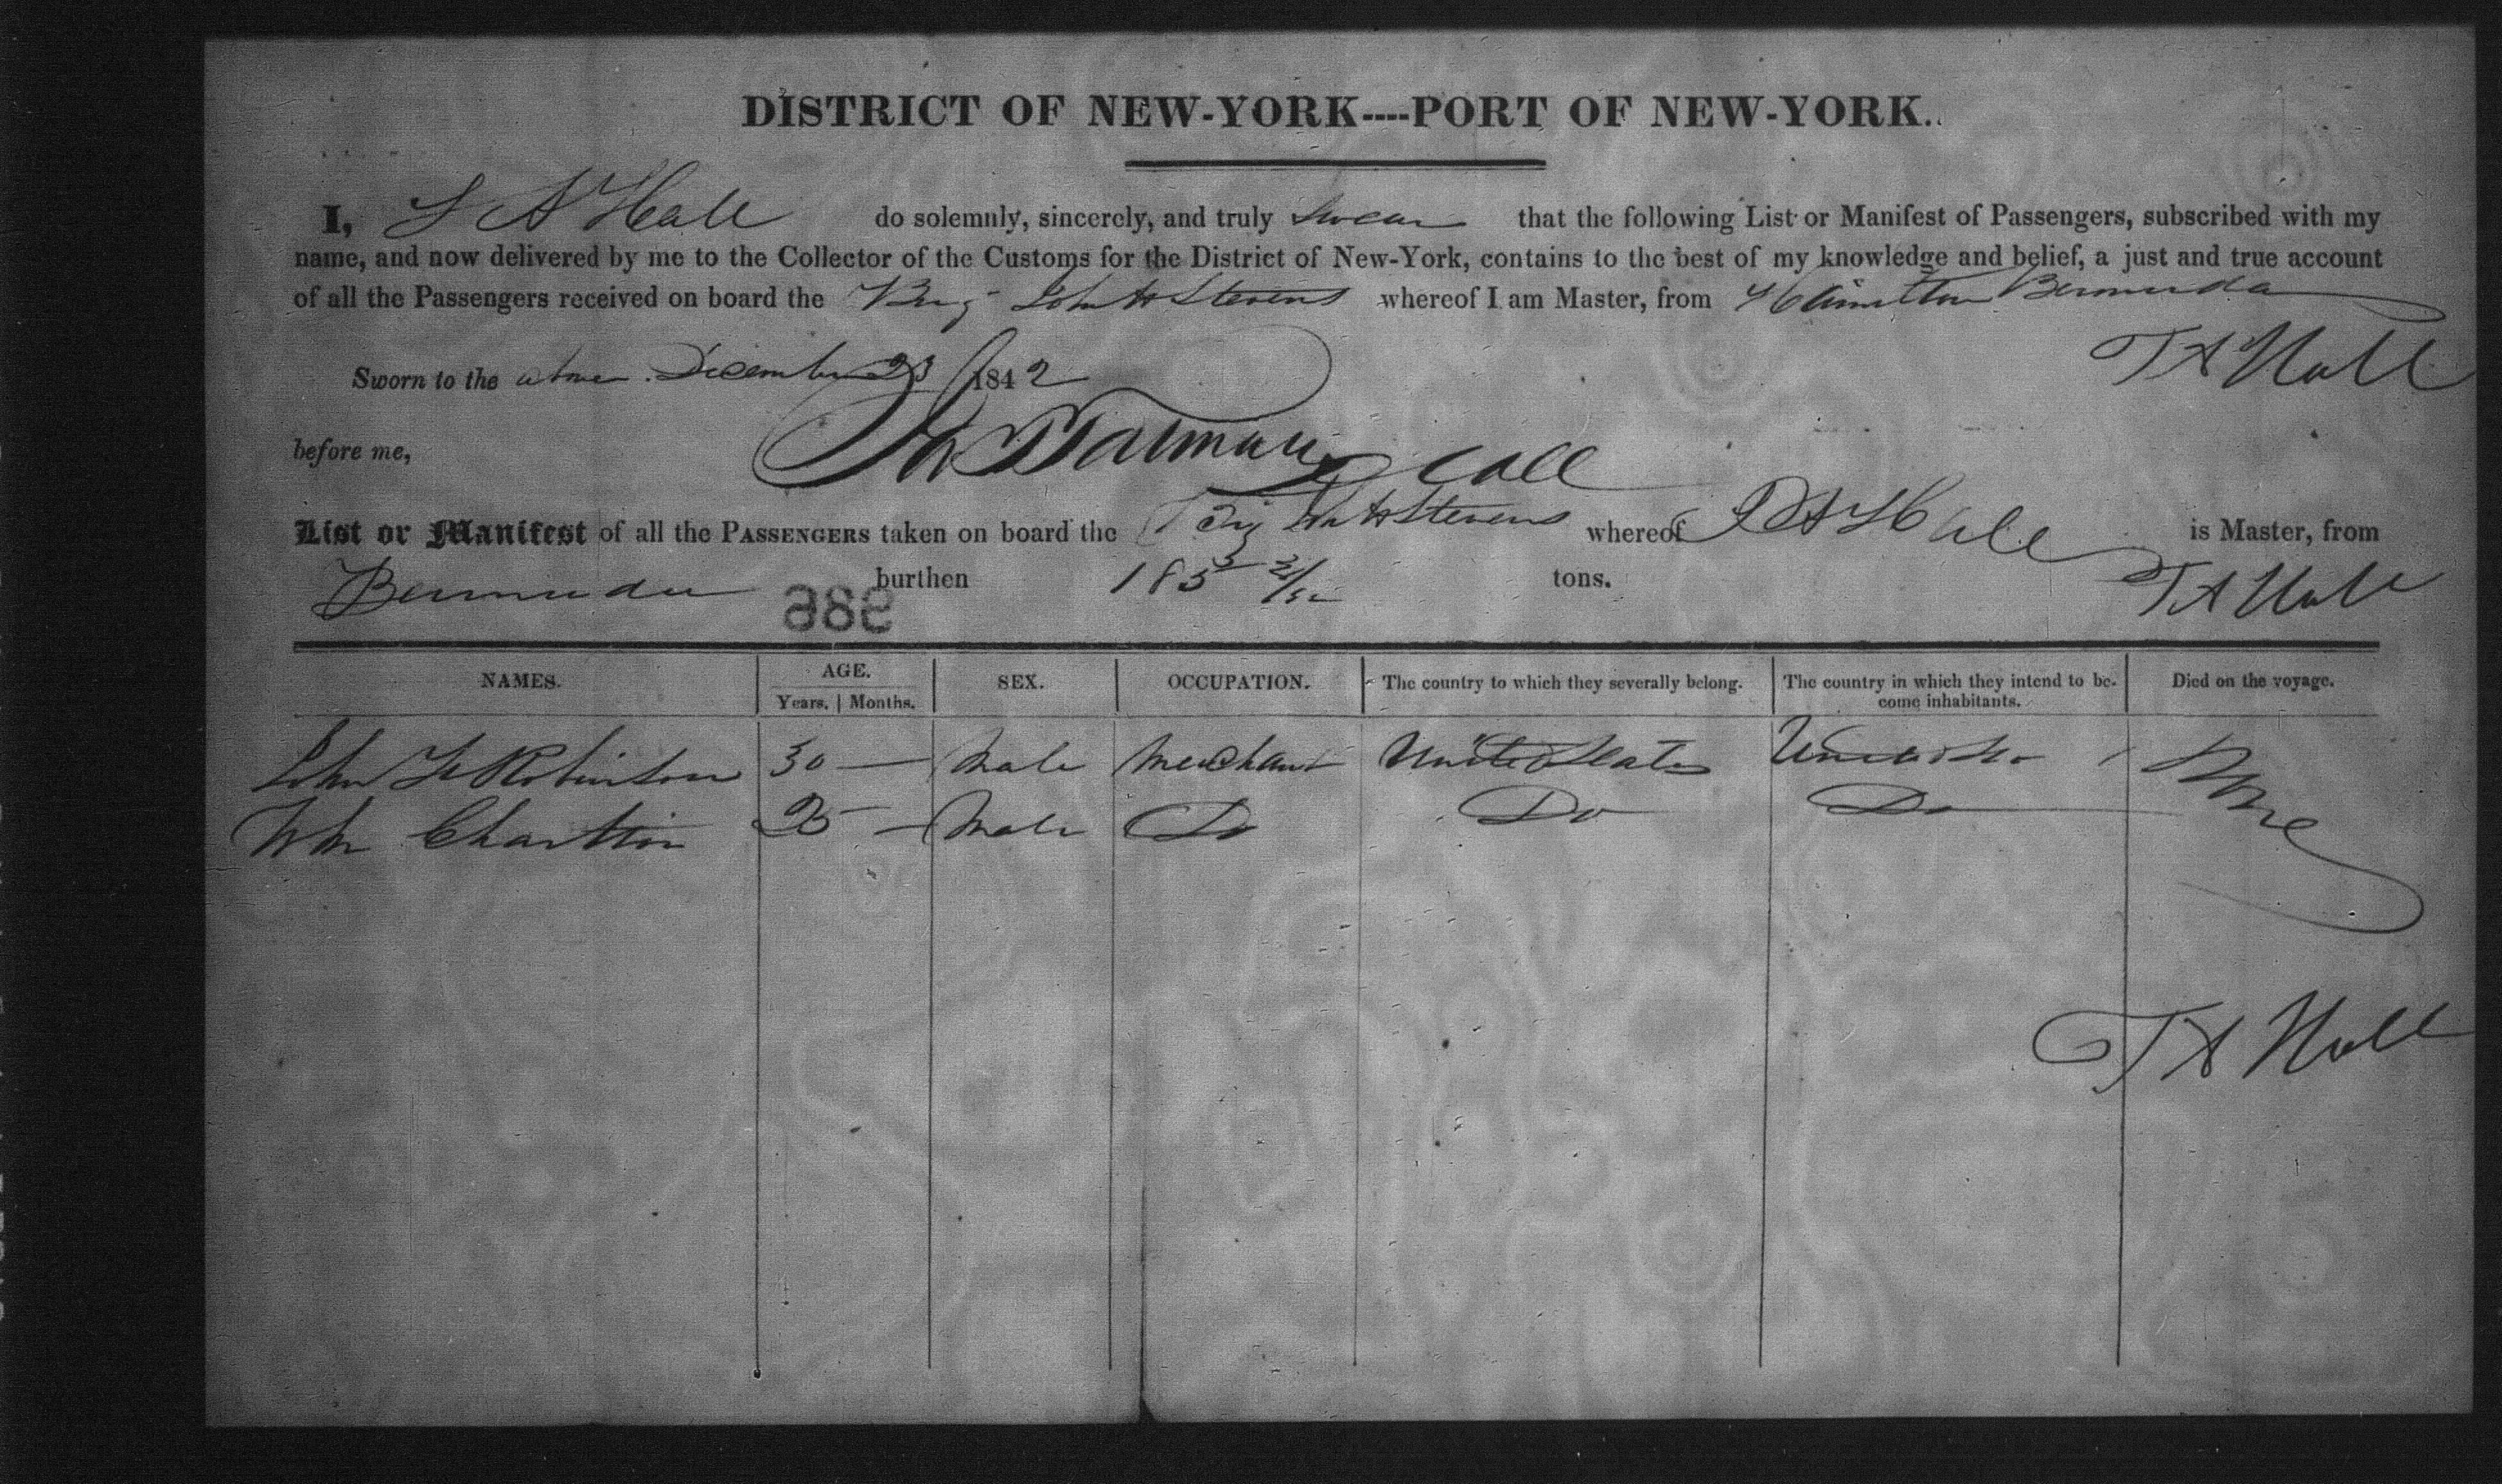 DISTRICT OF NEW-YORK----PORT OF NEW-YORK.
I, T A Hall do solemnly, sincerely, and truly swear that the following List or Manifest of Passengers, subscribed with my
name, and now delivered by me to the Collector of the Customs for the District of New-York, contains to the best of my knowledge and belief, a just and true account
of all the Passengers received on board the Brig John H Stevens whereof I am Master, from Hamilton Bermuda
T A Hall
Sworn to the above December 23 1842
before me, Coll
List or Manifest of all the PASSENGERS taken on board the Brig John H Stevens whereof T A Hall is Master, from
Bermuda burthen 185 tons. T A Hall
986
NAMES. AGE. SEX. OCCUPATION. The country to which they severally belong. The country in which they intend to be- Died on the voyage.
Years. Months. come inhabitants.
John Robinson 30 Male Merchant United States None
Wm 25 Male Do Do Do
T A Hall